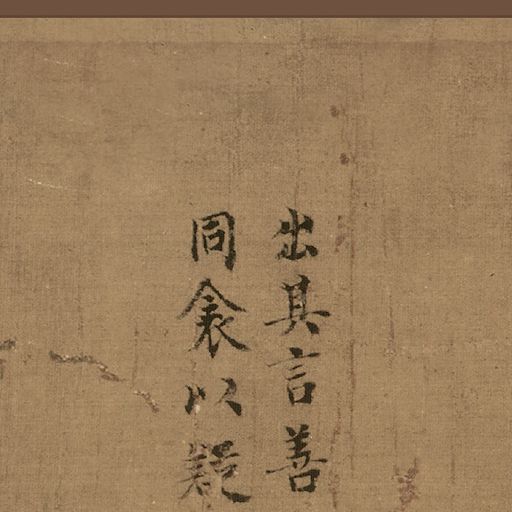 出其言善
同衾以疑